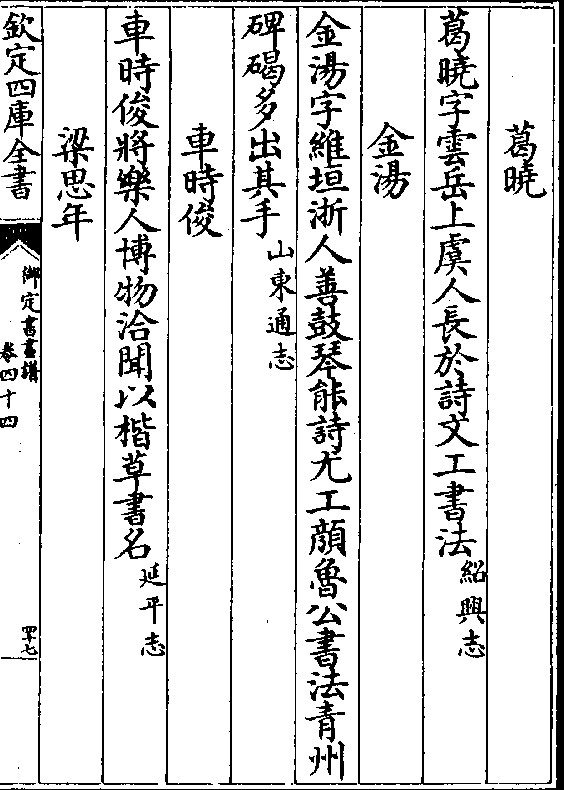 葛曉
葛曉字雲岳上虞人長於詩文工書法紹興志
金湯
金湯字維垣浙人善鼓琴能詩尤工顔魯公書法青州
碑碣多出其手山東通志
車時俊
車時俊將樂人博物洽聞以楷草書名延平志
梁思年
欽定四庫全書
御定書畫譜
卷四十四
四十七